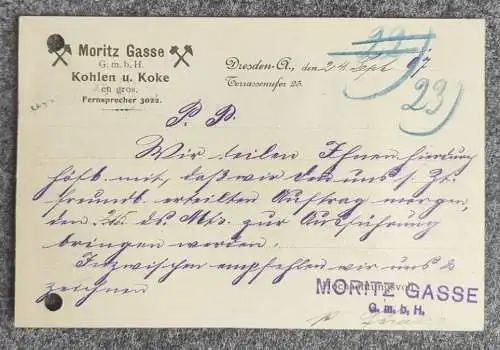 Moritz Gasse
G. m. b. H.
Kohlen u. Koke
en gros.
Fernsprecher 3022.
Dresden-A., den 24 Sept 07
Terrassenufer 25.
23
P. P.
Wir teilen Ihnen hierdurch
höfl. mit, daß wir den uns s. Zt.
freundl. erteilten Auftrag morgen,
den 25. ds. Mts. zur Ausführung
bringen werden.
Inzwischen empfehlen wir uns &
zeichnen
Hochachtungsvoll
MORITZ GASSE
G. m. b. H.